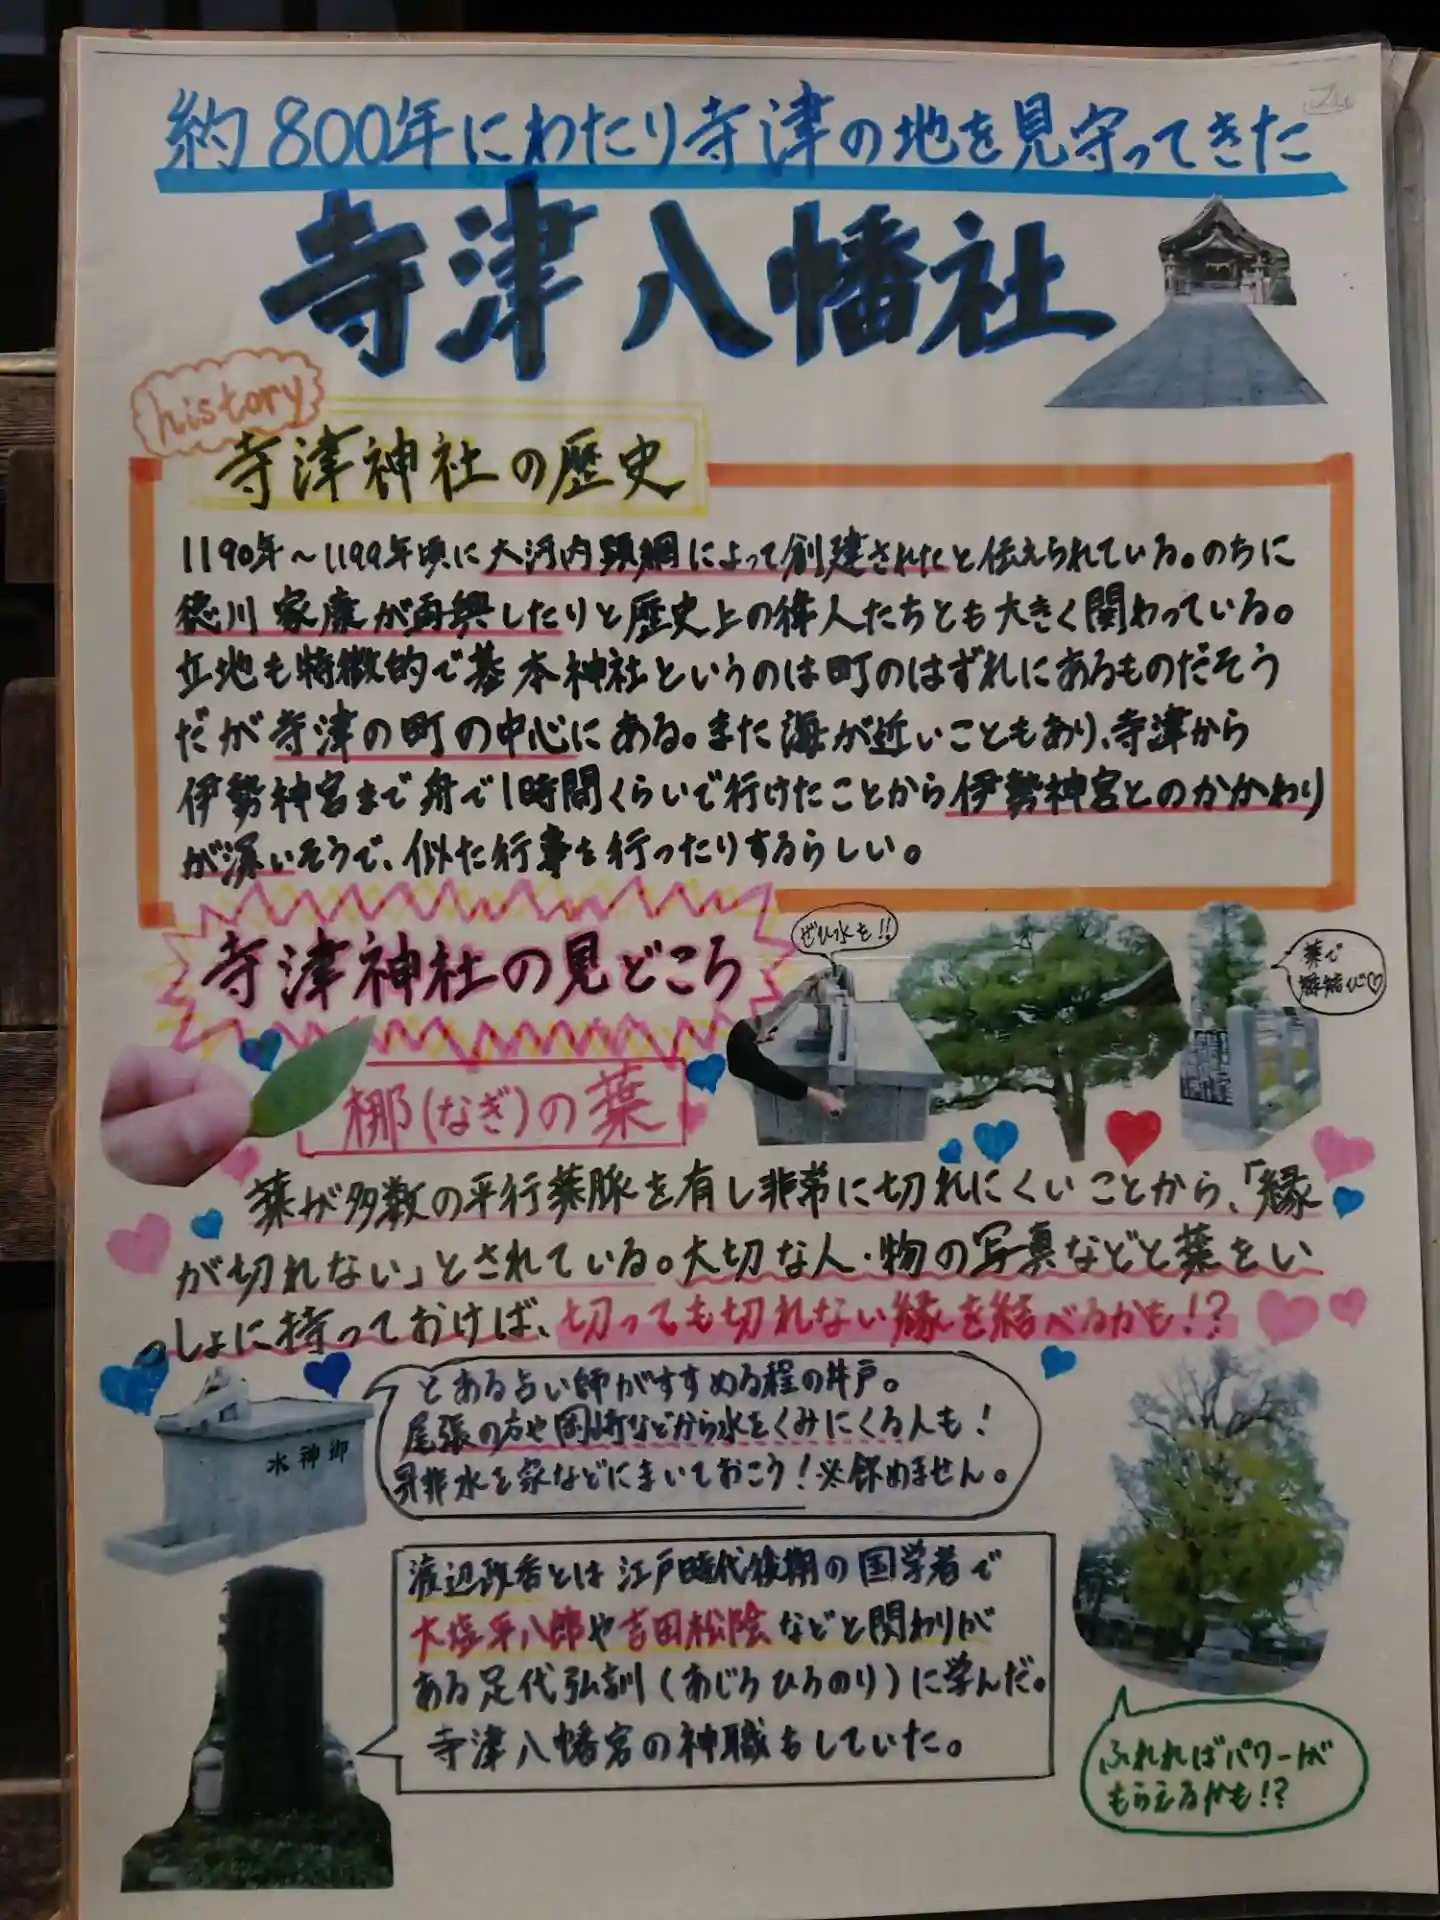 約800年にわたり寺津の地を見守ってきた
寺津八幡社
history
寺津神社の歴史
1190年～1199年頃に大河内顕綱によって創建されたと伝えられている。のちに
徳川家康が再興したりと歴史上の偉人たちとも大きく関わっている。
立地も特徴的で基本神社というのは町のはずれにあるものだそう
だが寺津の町の中心にある。また海が近いこともあり、寺津から
伊勢神宮まで舟で1時間くらいで行けたことから伊勢神宮とのかかわり
が深いそうで、似た行事を行ったりするらしい。
寺津神社の見どころ
ぜひ水も!!
葉で
縁結び♡
梛(なぎ)の葉
葉が多数の平行葉脈を有し非常に切れにくいことから、「縁
が切れない」とされている。大切な人・物の写真などと葉をい
っしょに持っておけば、切っても切れない縁を結べるかも!?
とある占い師がすすめる程の井戸。
尾張の方や岡崎などから水をくみにくる人も!
是非水を家などにまいておこう!※飲めません。
水神御
渡辺政香とは江戸時代後期の国学者で
大塩平八郎や吉田松陰などと関わりが
ある足代弘訓(あじろひろのり)に学んだ。
寺津八幡宮の神職もしていた。
ふれればパワーが
もらえるかも!?